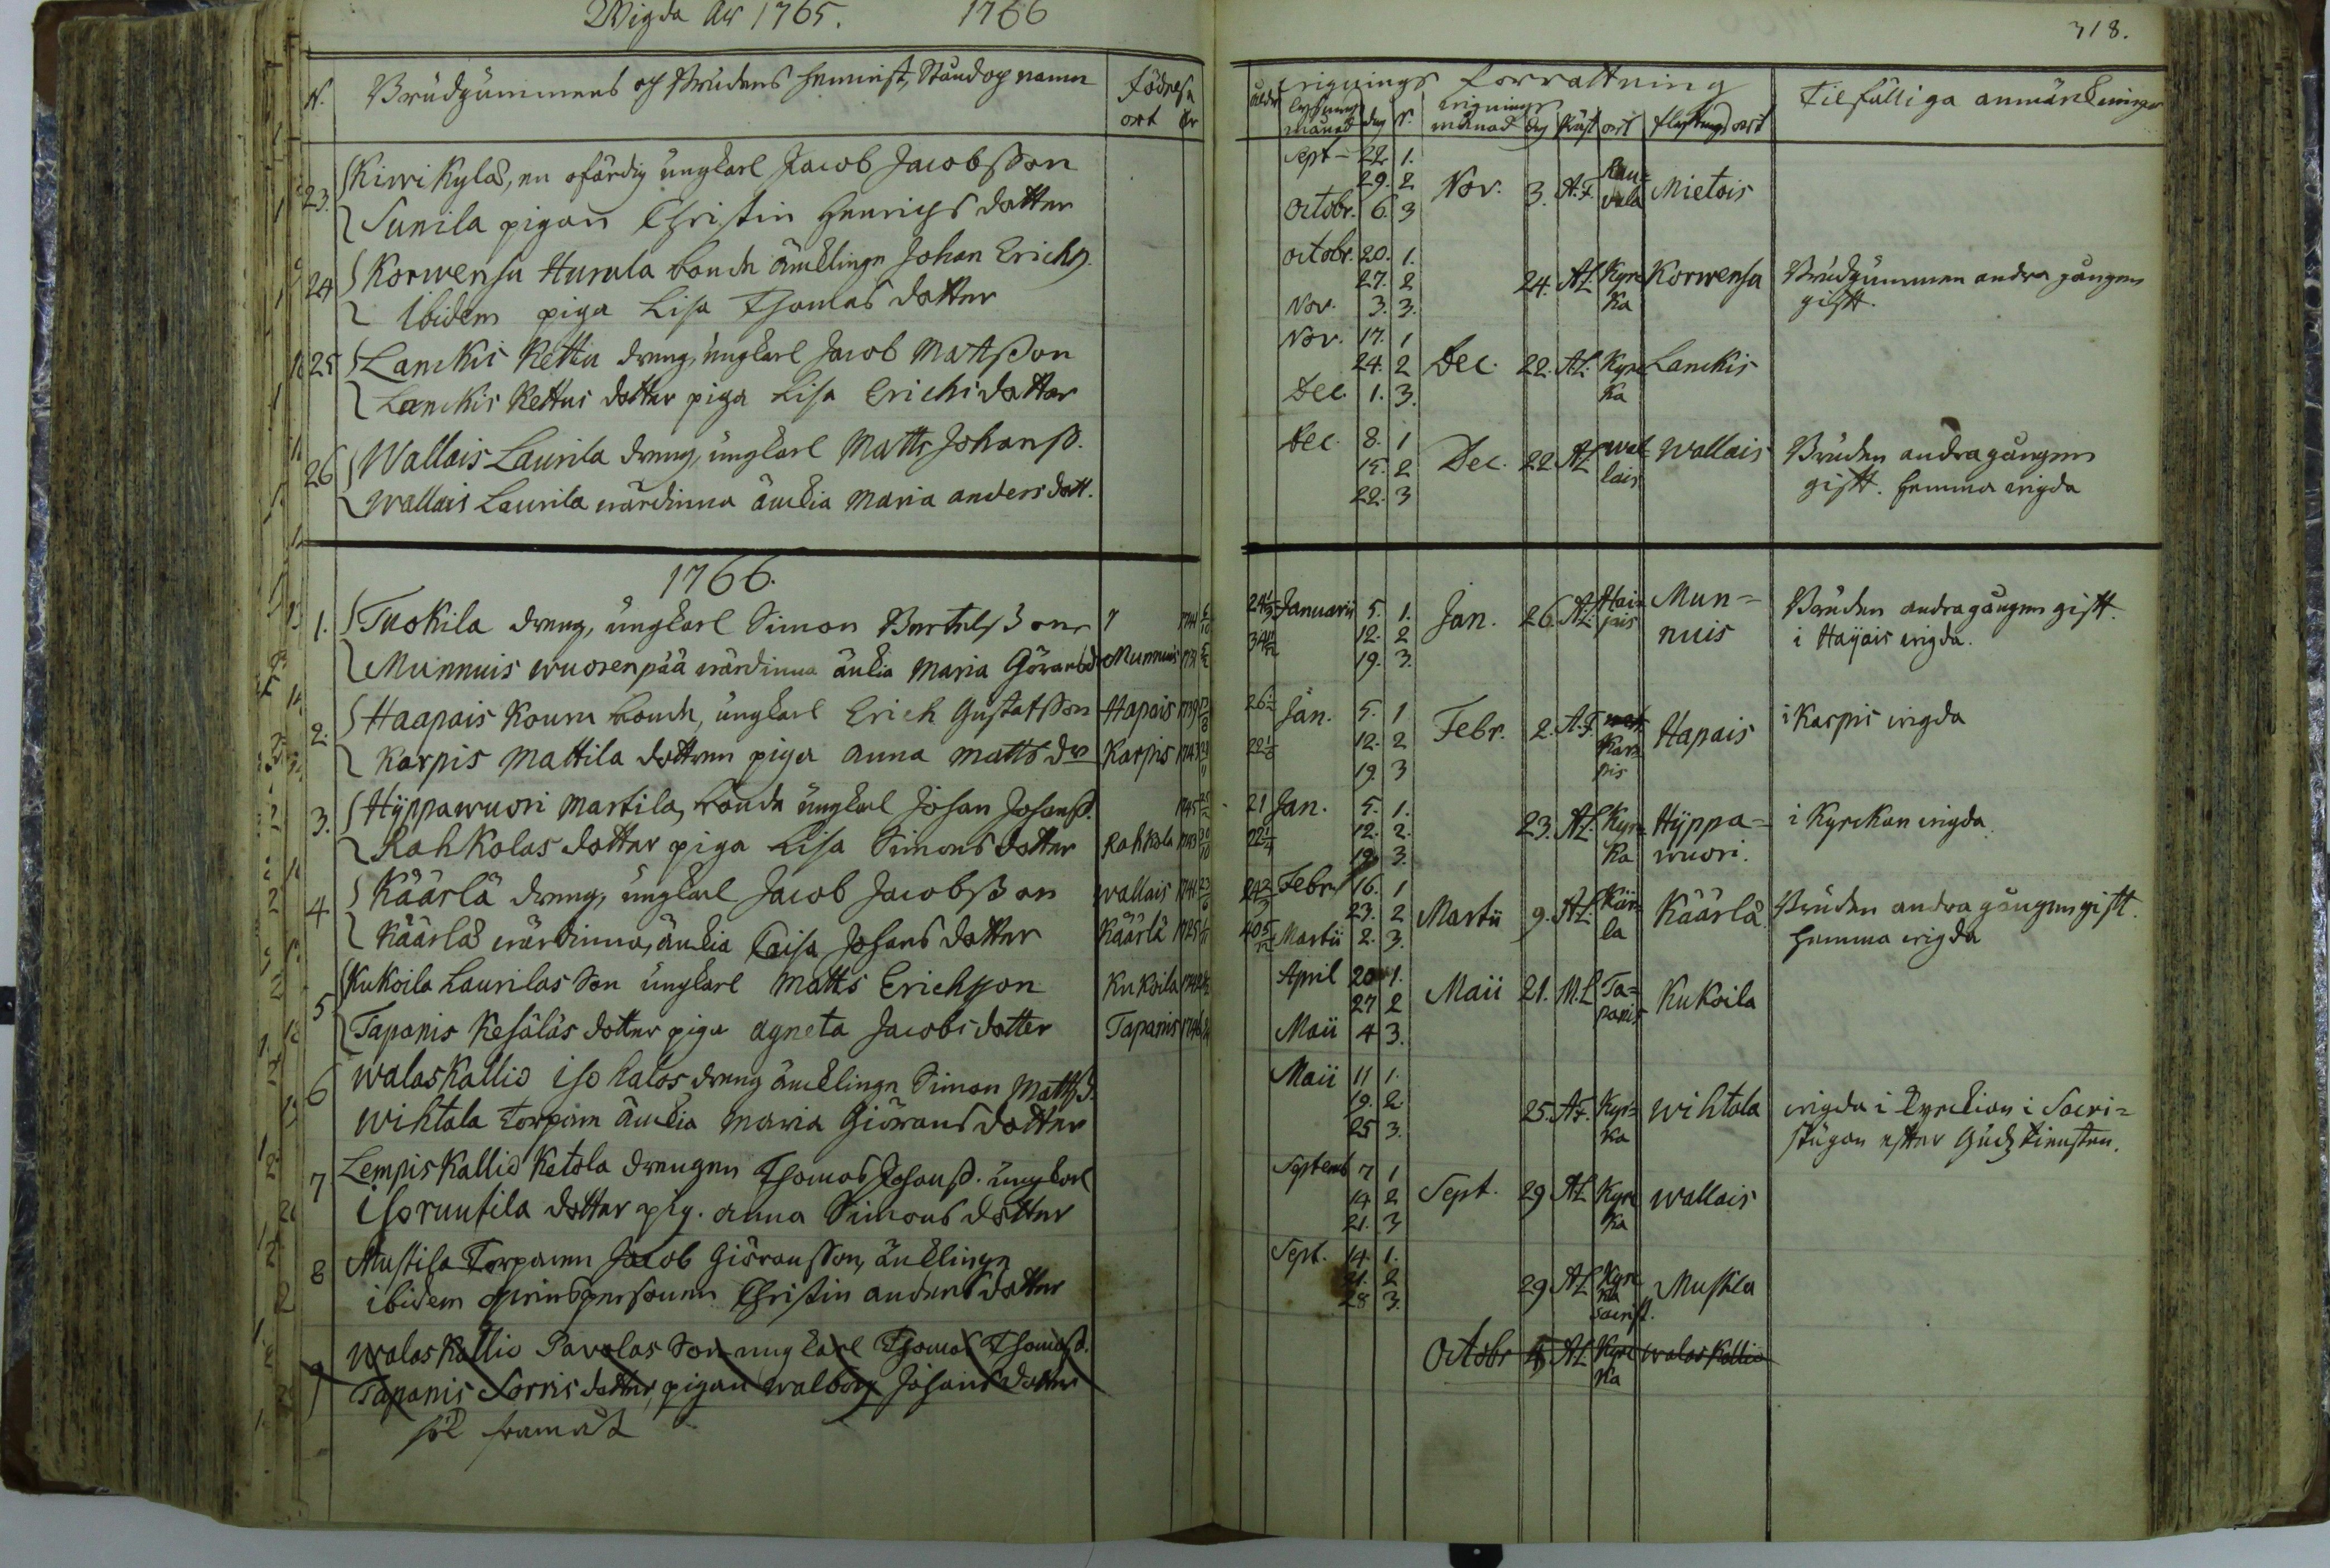 Wigda År 1765. 1766
N. Brüdgummens och Brüdens hemvist, Stånd och namn
Födelse
ort år
23. Kiwikylas, en ofärdig ungkarl Jacob Jacobsson
Sunila pigan Christin Henrichs dotter
24 Korwensu Hurula bonde änklingn Johan Erichs.
Ibidem piga Lisa Thomas dotter
25 Lanckis Kettu dreng, ungkarl Jacob Mattsson
Lanckis Kettus dotter piga Lisa Erichs dotter
26 Wallais Laurila dreng, ungkarl Matts Johanss.
Wallais Laurila wärdinna änckia Maria anders dott.
1766.
1. Tuokila dreng, ungkarl Simon Bertelsson 1741
Munnuis wuorenpää wärdinna änkia Maria Görans dr Munnuis 1731
2. Haapais Kouru bonde, ungkarl Erich Gustafsson Hapais 1739
Karpis Mattila dottren piga Anna Matts dr Karpis 1743
3. Hÿppawuori Martila, bonde ungkarl Johan Johanss. 1745
Rahkolas dotter piga Lisa Simons dotter Rahkola 1743
4 Käärlä dreng, ungkarl Jacob Jacobsson Wallais 1741
Käärlas wärdinna, änkia Caisa Johans dotter Käärlä 1725
5 Kukoila Laurilas Son ungkarl Matts Erichsson Kukoila
Tapanis Kesäläs dotter piga agneta Jacobs dotter Tapanis 1746
6 Walaskallio iso talos dreng äncklingn Simon Mattss.
Wihtola Torparn änckia Maria Giörans dotter
7 Lempiskallio Ketola drengen Thomas Johanss. ungkarl
Isoruutila dotter pig. Anna Simons dotter
8 Mustila Torparen Jacob Giöransson, äncklingn
ibidem qwinspersonen Christin anders dotter
9 Walaskallio Pavolas Son ungkarl Thomas Thomass.
Tapanis Sorris dotter, pigan Walborg Johans dotter
sök framåt
318.
ålder wignings förrättning Tilfälliga anmärkningar
lysnings månad dag N. wignings månad dag Präst ort flyttnings ort
Sept 22. 1.
29. 2 Nov. 3. A.F. Mietois
Octobr. 6. 3
Octobr. 20. 1.
27. 2 24. AL. Kyrc Korwensu Brüdgummen andra gången
Nov. 3. 3. ka gift.
Nov. 17. 1
24. 2 Dec. 22. AL. Kyrc Lanckis
Dec. 1. 3. ka
Dec. 8. 1
15. 2 Dec. 22. AL Wal Wallais Brüden andra gången
22. 3 lais gift. hemma wigda
Januarii 5. 1. Jan. 26. AL. Mun= Brüden andra gången gift.
12. 2 nuis i Haÿais wigda.
19. 3.
Jan. 5. 1
12. 2 Febr. 2. A.F. Kar pis Hapais i Karpis wigda
19. 3
21 Jan. 5. 1.
12. 2. 23. AL. Kyr Hÿppa= i Kyrckan wigda.
19. 3. ka wuori.
Febr. 16. 1
23. 2 Martii 9. AL. Kär Käärlä Brüden andra gången gift.
Martii 2. 3. la hemma wigda
April 20 1.
27 2 Maii 21. M.L Ta= Kukoila
Maii 4 3. panis
Maii 11 1.
19. 2. 25. AF. Kyr= Wihtola wigda i kyrckian i Sacri=
25 3. ka stugan efter Gudztiensten.
Septemb 7 1
14 2 Sept. 29 AL Kyrc Wallais
21. 3 ka
Sept. 14. 1.
21. 2 29 AL Kyrc Mustila
28 3. ka sacrist.
Octobr AL Kyrc Walaskallio
ka